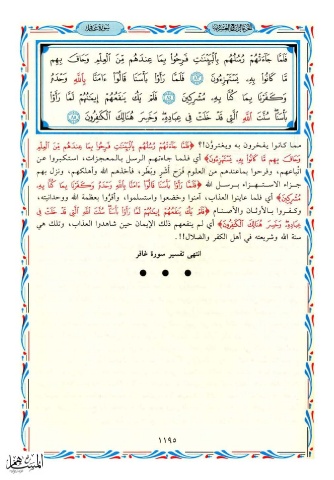 سورة غافر
فَلَمَّا جَاءَتْهُمْ رُسُلُهُم بِالْبَيِّنَاتِ فَرِحُوا بِمَا عِندَهُم مِّنَ الْعِلْمِ وَحَاقَ بِهِم
مَّا كَانُوا بِهِ يَسْتَهْزِءُونَ ﴿٨٣﴾ فَلَمَّا رَأَوْا بَأْسَنَا قَالُوا ءَامَنَّا بِاللَّهِ وَحْدَهُ
وَكَفَرْنَا بِمَا كُنَّا بِهِ مُشْرِكِينَ ﴿٨٤﴾ فَلَمْ يَكُ يَنفَعُهُمْ إِيمَانُهُمْ لَمَّا رَأَوْا
بَأْسَنَا سُنَّتَ اللَّهِ الَّتِي قَدْ خَلَتْ فِي عِبَادِهِ وَخَسِرَ هُنَالِكَ الْكَافِرُونَ ﴿٨٥﴾
مما كانوا يفخرون به ويغترُّون!؟ ﴿فَلَمَّا جَاءَتْهُمْ رُسُلُهُم بِالْبَيِّنَاتِ فَرِحُوا بِمَا عِندَهُم مِّنَ الْعِلْمِ
وَحَاقَ بِهِم مَّا كَانُوا بِهِ يَسْتَهْزِءُونَ﴾ أي فلما جاءتهم الرسل بالمعجزات، استكبروا عن
اتِّباعهم، وفرحوا بماعندهم من العلوم فَرَح أَشَرٍ وبَطَر، فأخذهم الله وأهلكهم، ونزل بهم
جزاء الاستهزاء برسل الله ﴿فَلَمَّا رَأَوْا بَأْسَنَا قَالُوا ءَامَنَّا بِاللَّهِ وَحْدَهُ وَكَفَرْنَا بِمَا كُنَّا بِهِ
مُشْرِكِينَ﴾ أي فلما عاينوا العذاب، آمنوا وخضعوا واستسلموا، وأقرُّوا بعظمة الله ووحدانيته،
وكفروا بالأوثان والأصنام ﴿فَلَمْ يَكُ يَنفَعُهُمْ إِيمَانُهُمْ لَمَّا رَأَوْا بَأْسَنَا سُنَّتَ اللَّهِ الَّتِي قَدْ خَلَتْ فِي
عِبَادِهِ وَخَسِرَ هُنَالِكَ الْكَافِرُونَ﴾ أي لم ينفعهم ذلك الإيمان حين شاهدوا العذاب، وتلك هي
سنة الله وشريعته في أهل الكفر والضلال!!.
انتهى تفسير سورة غافر
١١٩٥